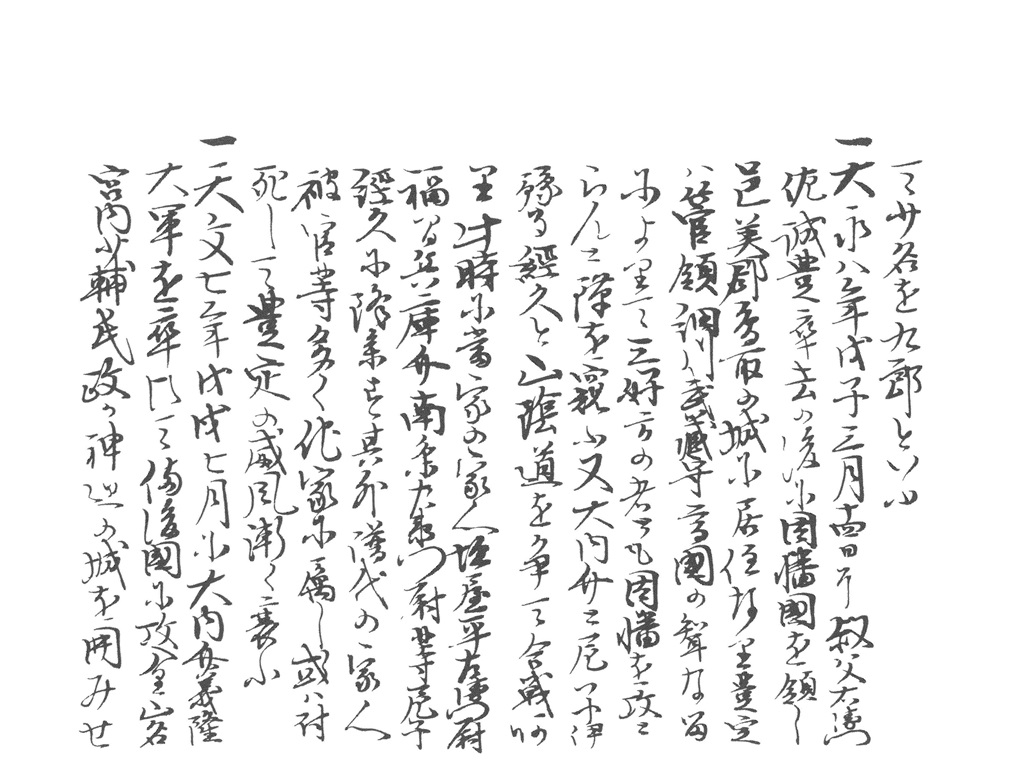 て廿名を九郎といふ
一大永八年戊子三月十四日 叔父左衛門
佐誠豊卒去の後に因幡國を領し
邑美郡 取の城に居住なり豊定
ハ管領細川武蔵守高國の聟なる
によりて三好方の者とも因幡を攻と
らんと隙を窺ふ又大内并に尼子伊
豫守經久と山陰道を争て合戦
里此時に當家の家人垣屋平左衛門尉
福 兵庫并南条左衛門尉等尼子
經久に降参す其外譜代の家人
被官等多く他家に属し或ハ討
死して豊定の威風漸く衰ふ
一天文七年戊戌七月に大内義隆
大軍を率して備後國に攻入山名
宮内少輔氏政か神辺の城を囲みせ